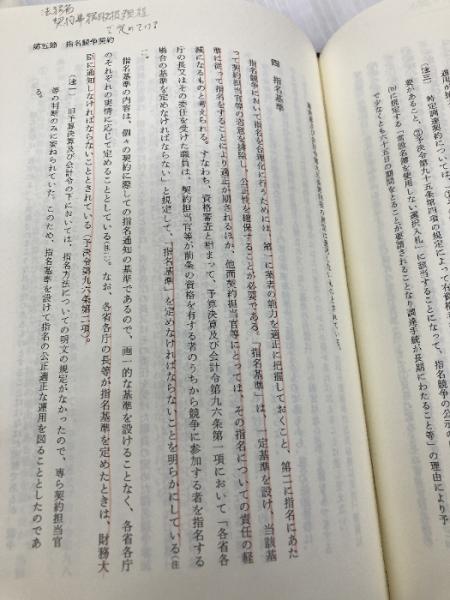 契約事務取扱規程
で定めている
第五節 指名競争契約
四 指名基準
指名競争において指名を合理化に行うためには、第一に業者の能力を適正に把握しておくこと、第二に指名にあた
って契約担当官等の恣意を排除し、公正性を確保することが必要である。「指名基準」は、一定基準を設け、当該基
準に従って指名をすることにより適正が期されるほか、他面契約担当官等にとっては、その指名についての責任の軽
減になるものと考えられる。すなわち、資格審査と相まって、予算決算及び会計令第九六条第一項において「各省各
庁の長又はその委任を受けた職員は、契約担当官等が前条の資格を有する者のうちから競争に参加する者を指名する
場合の基準を定めなければならない」と規定して、「指名基準」を定めなければならないことを明らかにしている(注
指名基準の内容は、個々の契約に際しての指名通知の基準であるので、画一的な基準を設けることなく、各省各庁
のそれぞれの実情に応じて定めることとしている(注二)。なお、各省各庁の長等が指名基準を定めたときは、財務大
臣に通知しなければならないこととされている(予決令第九六条第二項)。
(注一) 旧予算決算及び会計令の下においては、指名方法についての明文の規定がなかったので、専ら契約担当官
等の判断のみに委ねられていた。このため、指名基準を設けて指名の公正適正な運用を図ることとしたのであ
る。
(注三) 特定調達契約については、
要があること、③予決令第九十五条第四項の規定によって有資格
に規定する「常設名簿を使用しない選択入札」に該当することになって、資格
で少なくとも六十五日の期間をとることが要請されることとなり調達手続が長期にわたること等」の理由により予